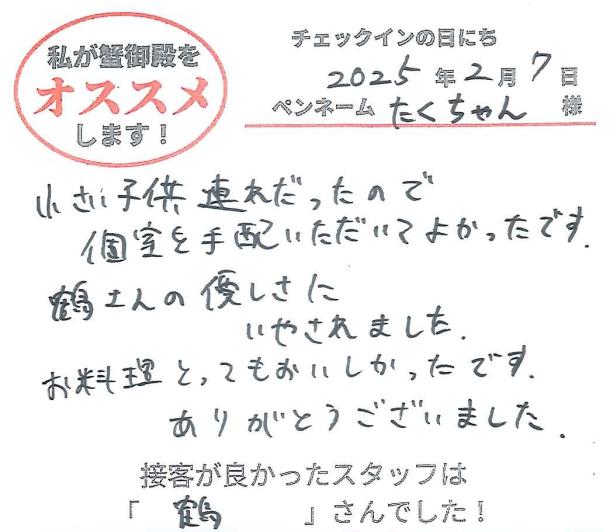 私が蟹御殿を
オススメ
します！
チェックインの日にち
2025年2月7日
ペンネーム たくちゃん 様
小さい子供連れだったので
個室を手配いただいてよかったです.
鶴さんの優しさに
いやされました.
お料理とってもおいしかったです.
ありがとうございました.
接客が良かったスタッフは
「 鶴 」さんでした！